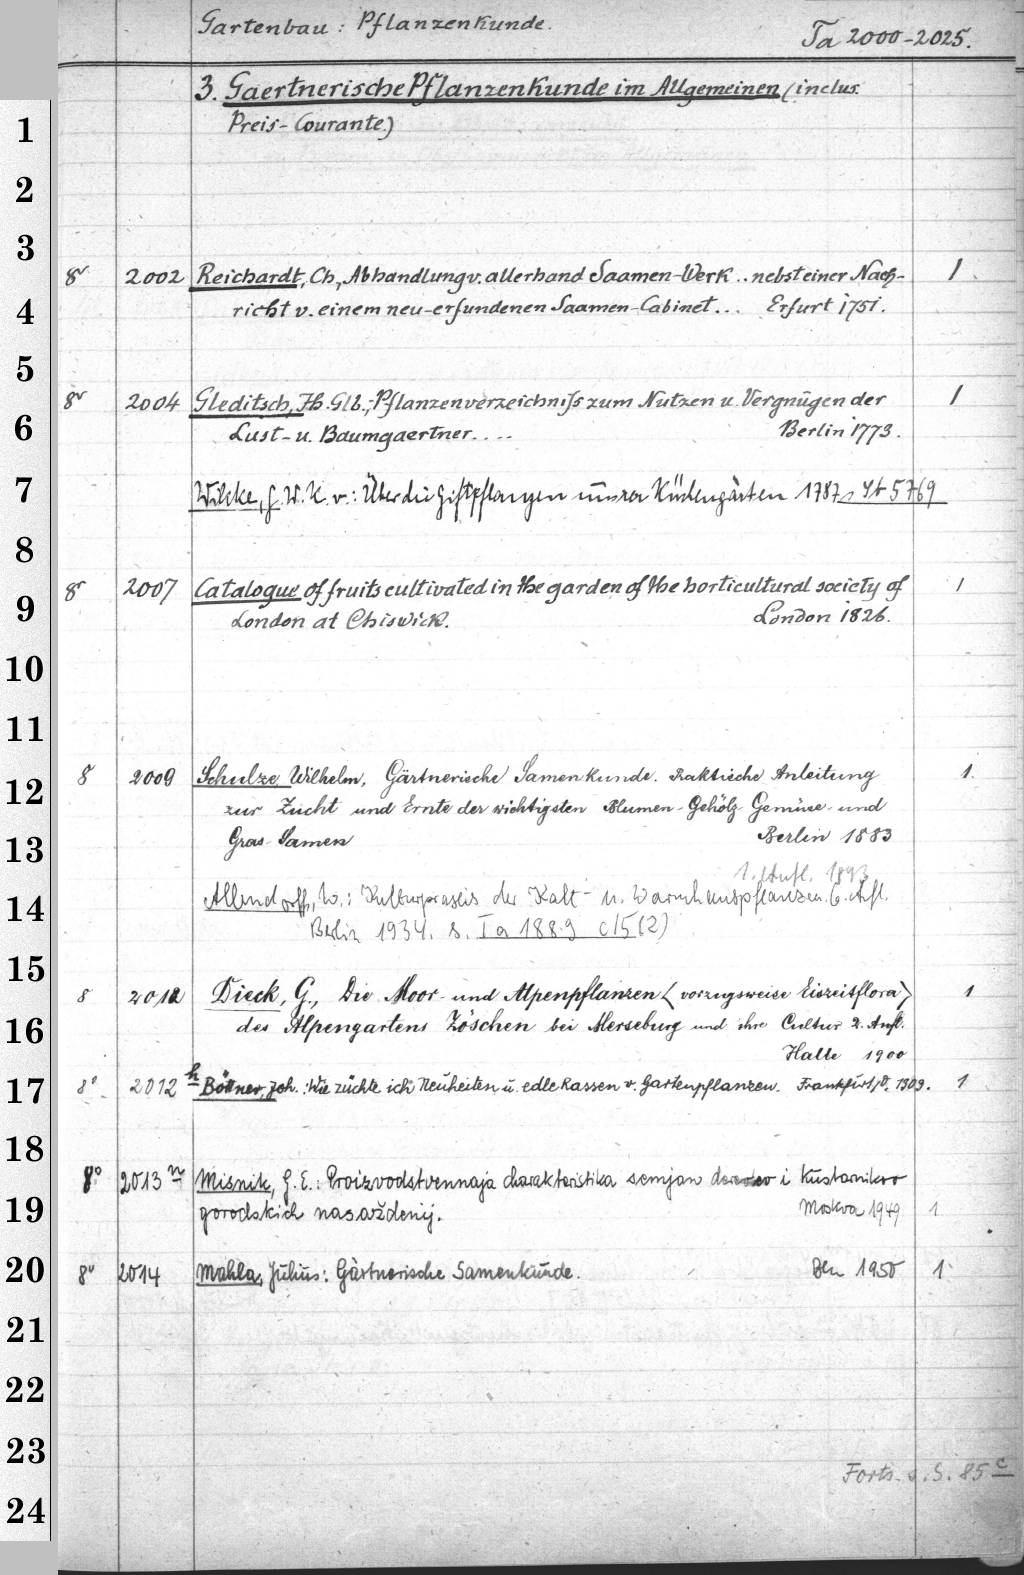 Gartenbau: Pflanzenkunde. Ta 2000-2025.
3. Gaertnerische Pflanzenkunde im Allgemeinen (inclus.
Preis-Courante)
1
2
3
8º 2002 Reichardt, Ch., Abhandlung v. allerhand Saamen-Werk .. nebst einer Nach- 1
4 richt v. einem neu-erfundenen Saamen-Cabinet... Erfurt 1751.
5
8º 2004 Gleditsch, Jh. Glb., Pflanzenverzeichniss zum Nutzen u. Vergnügen der 1
6 Lust- u. Baumgaertner.... Berlin 1773.
7 Wilcke, G. W. K. v.: Über die Giftpflanzen unsrer Küchengärten 1787 s. St 5769
8
8º 2007 Catalogue of fruits cultivated in the garden of the horticultural society of 1
9 London at Chiswick. London 1826.
10
11
8 2009 Schulze, Wilhelm, Gärtnerische Samenkunde. Praktische Anleitung 1.
12 zur Zucht und Ernte der wichtigsten Blumen- Gehölz- Gemüse- und
13 Gras-Samen Berlin 1883
1. Aufl. 1893
14 Allendorff, W.: Kulturpraxis der Kalt- u. Warmhauspflanzen. 6. Aufl.
Berlin 1934. s. Ta 1889 c/5 (2)
15
8 2012 Dieck, G., Die Moor- und Alpenpflanzen (vorzugsweise Eiszeitflora) 1
16 des Alpengartens Zöschen bei Merseburg und ihre Cultur 2. Aufl.
Halle 1900
17 8º 2012 h Böttner, Joh.: Wie züchte ich Neuheiten u. edle Rassen v. Gartenpflanzen. Frankfurt/O. 1909. 1
18
8º 2013 n Misnik, G. E.: Proizvodstvennaja charakteristika semjan i kustarnikov
19 gorodskich nasaždenij. Moskva 1949 1
20 8º 2014 Mahla, Julius: Gärtnerische Samenkunde. Bln 1950 1
21
22
23
Forts. s. S. 85 c
24